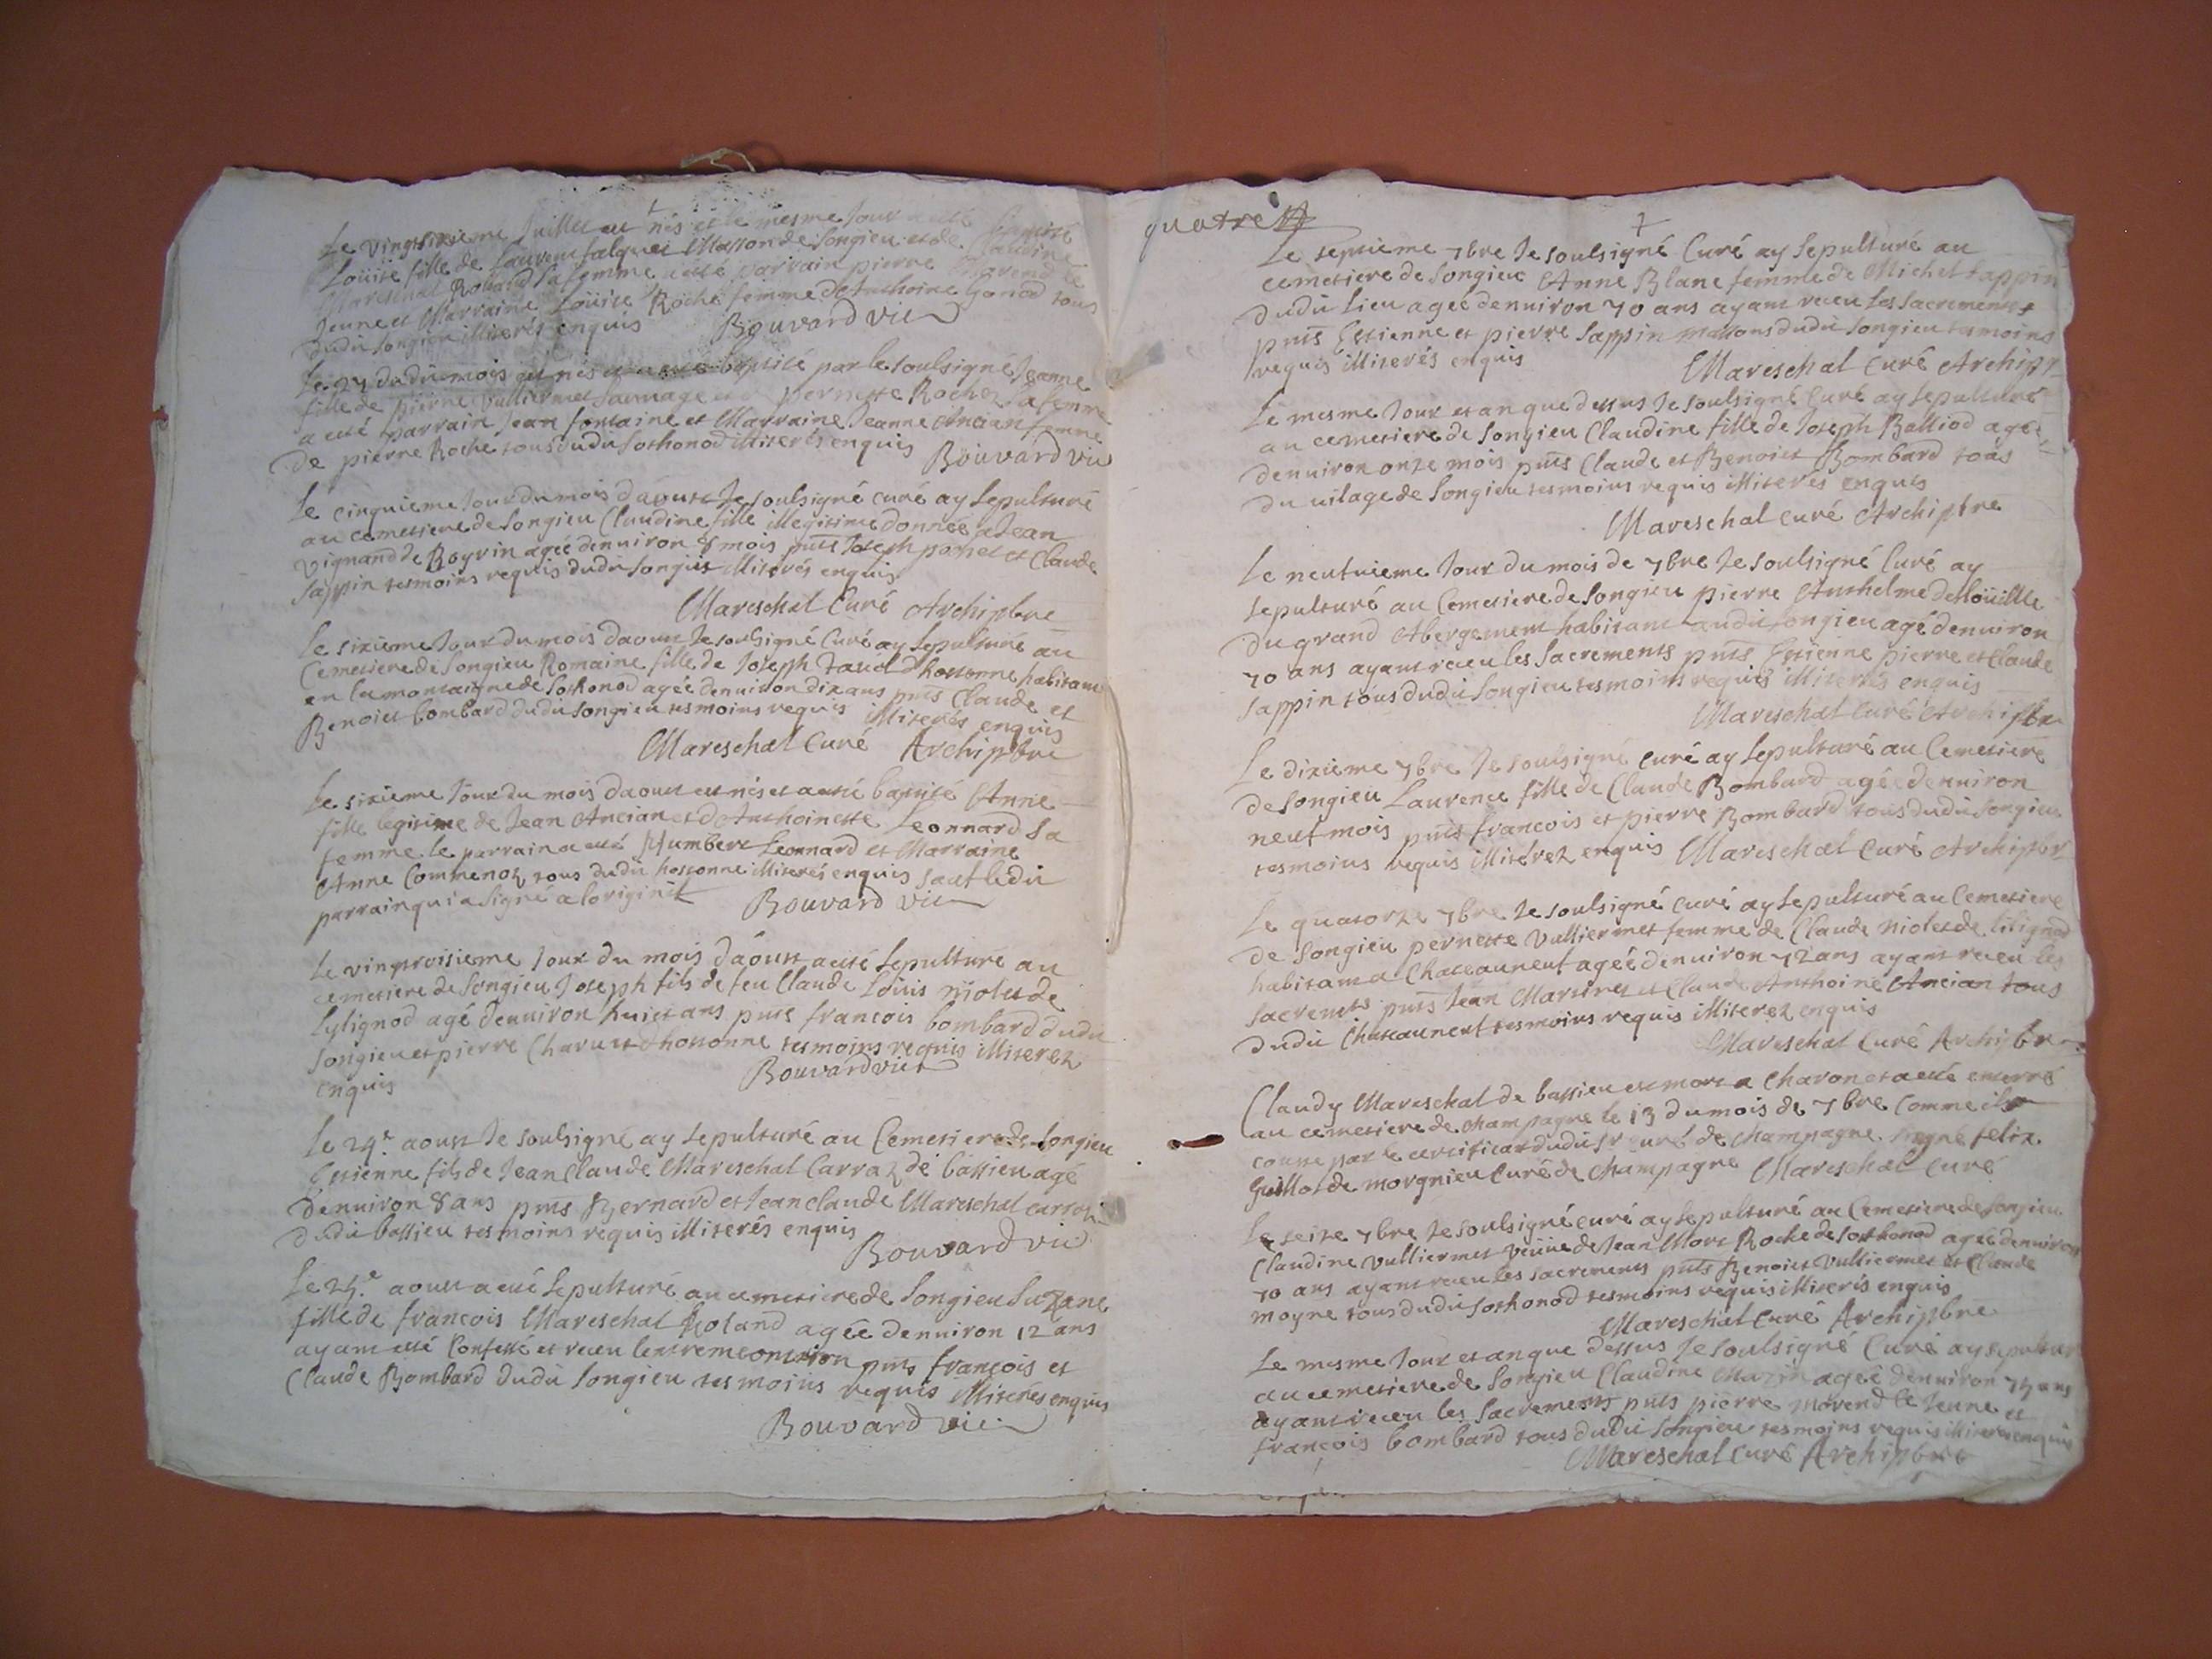 Le vingtsixieme Juillet est nés et le mesme Jour a esté baptisé
Loüise fille de Laurens falquet Masson de Songieu et de Claudine
Mareschal Roland sa femme a esté parrain pierre Morend le
Jeune et Marraine Loüise Roche femme de Anthoine Gonod tous
dudit Songieu illiterés enquis Bouvard vic
Le 27 dudit mois est nés et a esté baptisé par le soulsigné Jeanne
fille de pierre Vulliermet Sauvage et de pernette Rochez sa femme
a esté parrain Jean fontaine et Marraine Jeanne Ancian femme
de pierre Roche tous dudit Sothonod illiterés enquis Bouvard vic
Le cinquieme Jour du mois d'aoust Je soulsigné curé ay sepulturé
au cemetiere de Songieu Claudine fille illegitime donnée a Jean
vignand de Boyrin agée denuiron 8 mois pnts Joseph pochet et Claude
Sappin tesmoins requis dudit Songieu illiterés enquis
Mareschal Curé Archiptre
Le sixieme Jour du mois daoust Je soulsigné Curé ay sepulturé au
Cemetiere de Songieu Romaine fille de Joseph David dhostonne habitant
en la montaigne de Sothonod agée denuiron dix ans pnts Claude et
Benoict bombard dudit Songieu tesmoins requis illiterés enquis
Mareschal Curé Archiptre
Le sixieme Jour du mois daoust est nés et a esté baptisé Anne
fille legitime de Jean Ancian et d'Anthoinette Leonnard sa
femme le parrain a esté Humbert Leonnard et Marraine
Anne Commenoz tous dudit hostonne illiterés enquis sauf ledit
parrain qui a signé a loriginal Bouvard vic
Le vingtroisieme Jour du mois d'aoust a esté sepulturé au
cemetiere de Songieu Joseph fils de feu Claude Loüis niolet de
Lylignod agé denuiron huict ans pnts francois bombard dudit
Songieu et pierre Charvet dhostonne tesmoins requis illiterez
enquis Bouvard vic
Le 24e aoust Je soulsigné ay sepulturé au Cemetiere de Songieu
Estienne fils de Jean Claude Mareschal Carraz de bassieu agé
denuiron 8 ans pnts Bernard et Jean claude Mareschal carraz
dudit bassieu tesmoins requis illiterés enquis
Bouvard vic
Le 25e aoust a esté sepulturé au cemetiere de Songieu Suzane
fille de francois Mareschal Roland agée denuiron 12 ans
ayant esté Confessé et receu lextremeonction pnts françois et
Claude Bombard dudit Songieu tesmoins requis illiterés enquis
Bouvard vic
quatre
Le septieme 7bre Je soulsigné Curé ay sepulturé au
cemetiere de Songieu Anne Blanc femme de Michel Sappin
dudit Lieu agée denuiron 70 ans ayant receu les sacrements
pnts Estienne et pierre Sappin massons dudit Songieu tesmoins
requis illiterés enquis Mareschal Curé Archiptre
Le mesme Jour et an que dessus Je soulsigné Curé ay sepulturé
au cemetiere de Songieu Claudine fille de Joseph Balliod agée
denuiron onze mois pnts Claude et Benoict Bombard tous
du uilage de Songieu tesmoins requis illiterés enquis
Mareschal Curé Archiptre
Le neufuieme Jour du mois de 7bre Je soulsigné Curé ay
sepulturé au Cemetiere de Songieu pierre Anthelme deloüille
du grand Abergement habitant audit Songieu agé denuiron
70 ans ayant receu les Sacrements pnts Estienne pierre et Claude
Sappin tous dudit Songieu tesmoins requis illiterés enquis
Mareschal Curé Archiptre
Le dixieme 7bre Je soulsigné curé ay sepulturé au Cemetiere
de Songieu Laurence fille de Claude Bombard agée denuiron
neuf mois pnts francois et pierre Bombard tous dudit Songieu
tesmoins requis illitérez enquis Mareschal Curé Archiptre
Le quatorze 7bre Je soulsigné curé ay sepulturé au Cemetiere
de Songieu pernette Vulliermet femme de Claude niolet de lilignod
habitant a Chateauneuf agée denuiron 72 ans ayant receu les
sacrements pnts Jean Martinet et Claude Anthoine Ancian tous
dudit Chateauneuf tesmoins requis illiterez enquis
Mareschal Curé Archiptre
Claudy Mareschal de bassieu est mort a Charon et a esté enterré
au cemetiere de champagne le 13 du mois de 7bre Comme il
couste par le certificat dudit Sr curé de champagne signé felix
Guillot de morgnieu Curé de Champagne Mareschal Curé
Le seize 7bre Je soulsigné curé ay sepulturé au Cemetiere de Songieu
Claudine Vulliermet veüue de Jean Marc Roche de Sothonod agée denuiron
70 ans ayant receu les sacrements pnts Benoict Vulliermet et Claude
moyne tous dudit Sothonod tesmoins requis illiterés enquis
Mareschal Curé Archiptre
Le mesme Jour et an que dessus Je soulsigné Curé ay sepulturé
au cemetiere de Songieu Claudine Mazin agée denuiron 75 ans
ayant receu les Sacrements pnts pierre Morend le Jeune et
françois bombard tous dudit Songieu tesmoins requis illiterés enquis
Mareschal Curé Archiptre